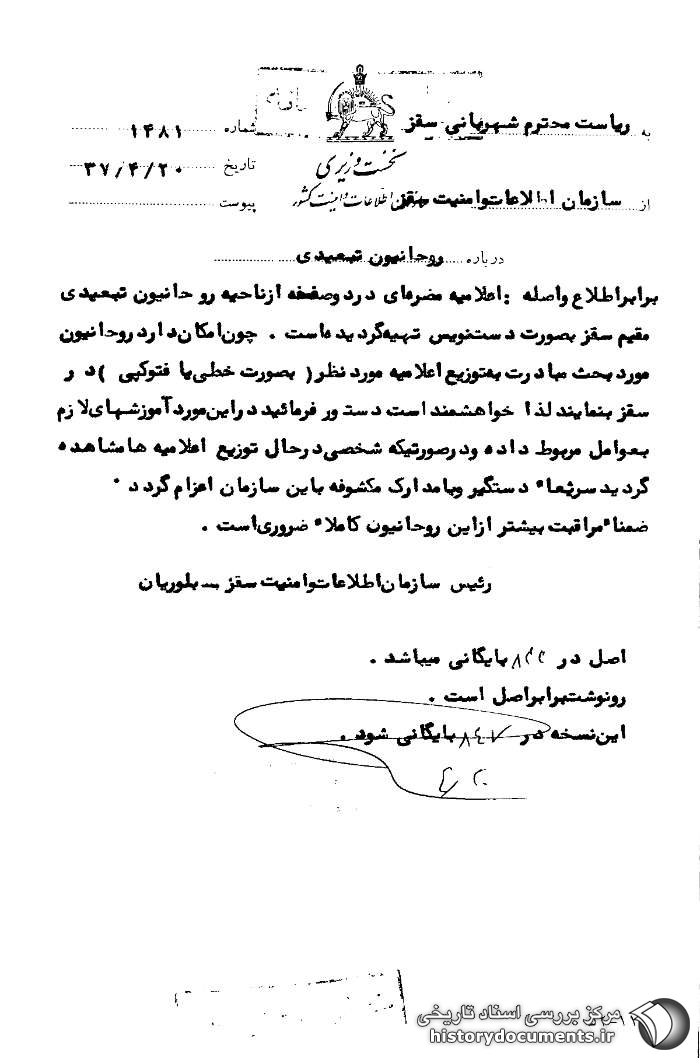 به ریاست محترم شهربانی سقز
شماره ۱۴۸۱
نخست وزیری
تاریخ ۳۷/۴/۲۰
از سازمان اطلاعات و امنیت سقز
اطلاعات و امنیت کشور
پیوست
درباره روحانیون تبعیدی
برابر اطلاع واصله : اعلامیه مضره‌ای در دو صفحه از ناحیه روحانیون تبعیدی
مقیم سقز بصورت دستنویس تهیه گردیده است . چون امکان دارد روحانیون
مورد بحث مبادرت به توزیع اعلامیه مورد نظر ( بصورت خطی یا فتوکپی ) در
سقز بنمایند لذا خواهشمند است دستور فرمائید در این مورد آموزشهای لازم
بعوامل مربوط داده و در صورتیکه شخصی در حال توزیع اعلامیه ها مشاهده
گردید سریعا" دستگیر و با مدارک مکشوفه باین سازمان اعزام گردد .
ضمنا" مراقبت بیشتر از این روحانیون کاملا" ضروری است .
رئیس سازمان اطلاعات و امنیت سقز ـ بلوریان
اصل در بایگانی میباشد .
رونوشت برابر اصل است .
این نسخه در ۸۴۷ بایگانی شود .
مرکز بررسی اسناد تاریخی
historydocuments.ir